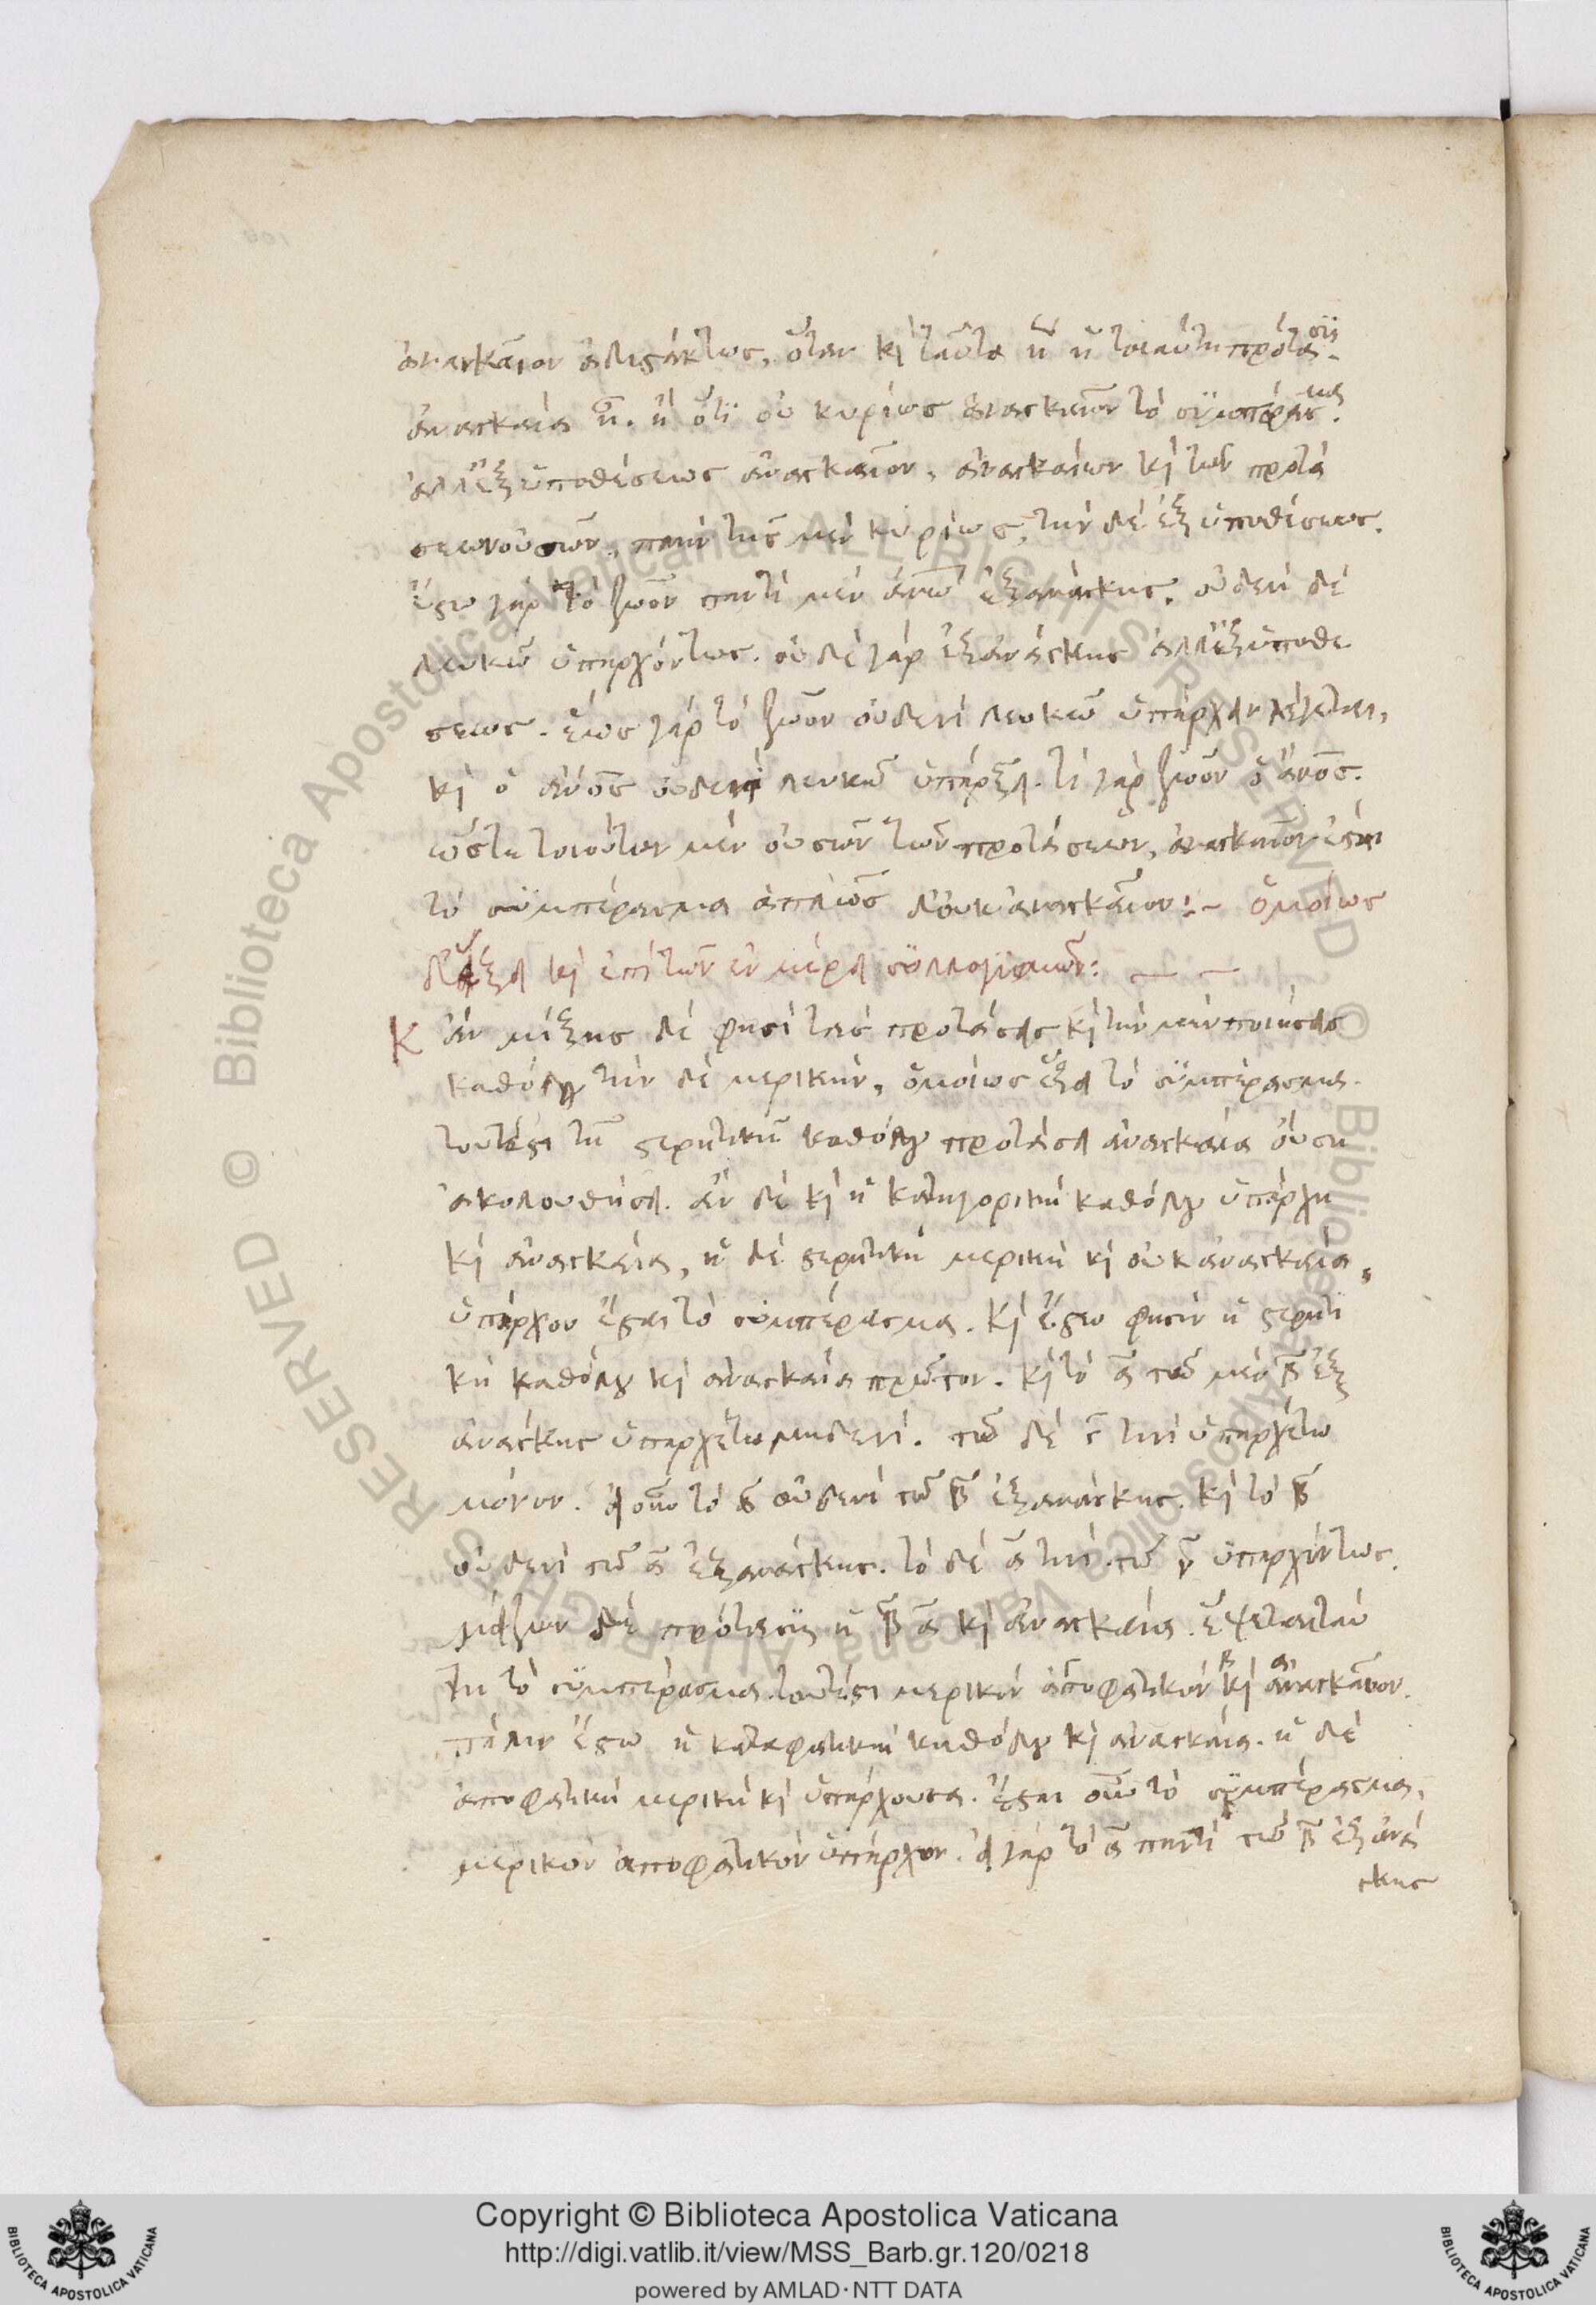 ἀναγκαῖον ἀδιστάκτως, ὅταν κὶ ταῦτα ἦ ἡ τοιαύτη πρότασις
ἀναγκαία ἦ. ἢ ὅτι οὐ κυρίως ἀναγκαῖον τὸ συμπέρασμα.
ἀλλ' ἐξ ὑποθέσεως ἀναγκαῖον, ἀναγκαίων κὶ τῶν προτά
σεων οὐσῶν, πλὴν τῆς μὲν κυρίως, τὴν δὲ ἐξ ὑποθέσεως.
ἔστω γὰρ τὸ ζῶον παντὶ μὲν ἀνω ἐξανάγκης. οὐδενὶ δὲ
λευκῶ ὑπαρχόντως. οὐδὲ γὰρ ἐξανάγκης ἀλλ' ἐξ ὑποθε
σεως. ἕως γὰρ τὸ ζῶον οὐδενὶ λευκῶ ὑπάρχειν λέγεται,
κὶ ὁ ἀνος οὐδενὶ λευκῶ ὑπάρξει. τί γὰρ ζῶον ὁ ἀνος.
ὥστε τοιούτων μὲν οὐσῶν τῶν προτάσεων, ἀναγκαῖον ἔσται
τὸ συμπέρασμα ἁπλῶς δ' οὐκ ἀναγκαῖον:~ ὁμοίως
δ' ἕξει κὶ ἐπὶ τῶν ἐν μέρει συλλογισμῶν:
Κἂν μίξης δὲ φησὶ τὰς προτάσεις κὶ τὴν μὲν ποιήσεις
καθόλου τὴν δὲ μερικὴν, ὁμοίως ἕξει τὸ συμπέρασμα.
τουτέστι τῆ στερητικῆ καθόλου προτάσει ἀναγκαία οὔση
ἀκολουθήσει. ἂν δὲ κὶ ἡ κατηγορικὴ καθόλου ὑπάρχη
κὶ ἀναγκαία, ἡ δὲ στερητικὴ μερικὴ κὶ οὐκ ἀναγκαία,
ὑπάρχον ἔσται τὸ συμπέρασμα. Κὶ ἔστω φησὶν ἡ στερητι
κὴ καθόλου κὶ ἀναγκαία πρῶτον. κὶ τὸ α τῶ μὲν β ἐξ
ἀνάγκης ὑπαρχέτω μηδενί. τῶ δὲ γ τινὶ ὑπαρχέτω
μόνον. εἰ οὖν τὸ α οὐδενὶ τῶ β ἐξανάγκης. κὶ τὸ β
οὐδενὶ τῶ α ἐξανάγκης. τὸ δὲ α τινὶ τῶ γ ὑπαρχόντως.
μείζων δὲ πρότασις ἡ β α κὶ ἀναγκαία. ἕψεται ταύ
τη τὸ συμπέρασμα. τουτέστι μερικὸν ἀποφατικὸν κὶ ἀναγκαῖον.
πάλιν ἔστω ἡ καταφατικὴ καθόλου κὶ ἀναγκαία. ἡ δὲ
ἀποφατικὴ μερικὴ κὶ ὑπάρχουσα. ἔσται οὖν τὸ συμπέρασμα,
μερικὸν ἀποφατικὸν ὑπάρχον. εἰ γὰρ τὸ α παντὶ τῶ β ἐξ ἀνά
γκης
Copyright © Biblioteca Apostolica Vaticana
http://digi.vatlib.it/view/MSS_Barb.gr.120/0218
powered by AMLAD·NTT DATA